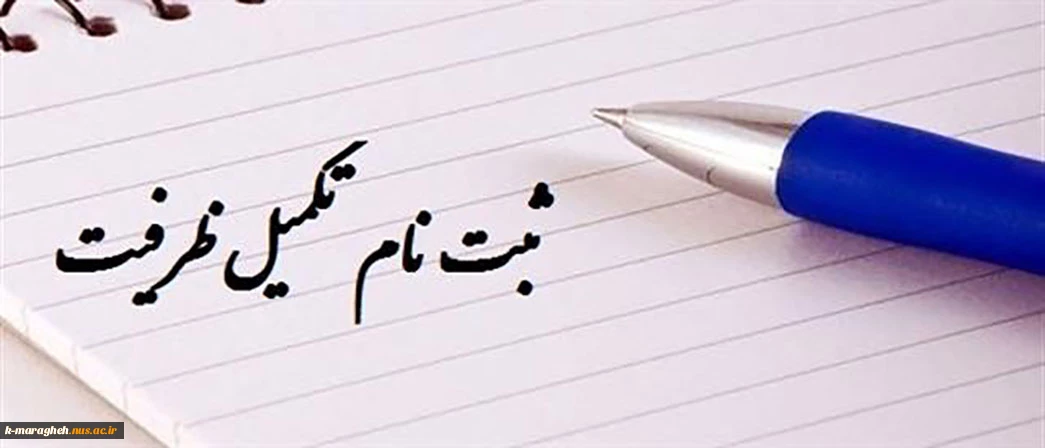 ثبت نام تکمیل ظرفیت
k-maragheh.nus.ac.ir